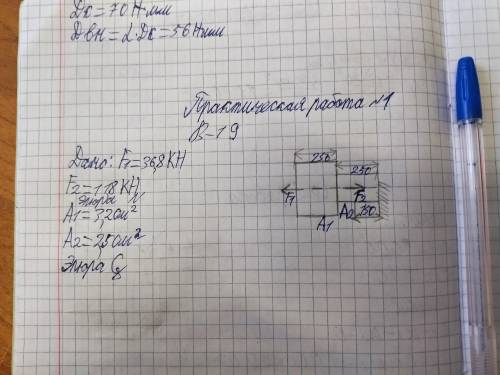 Дк=70 Нмм
Двн=α·Дк=56 Нмм
Практическая работа №1
В-19
Дано: F1=36,8 КН
F2=118 КН
Эпюра N
A1=3,2 см²
A2=2,5 см²
Эпюра
250
250
F1
F2
A1
A2
150